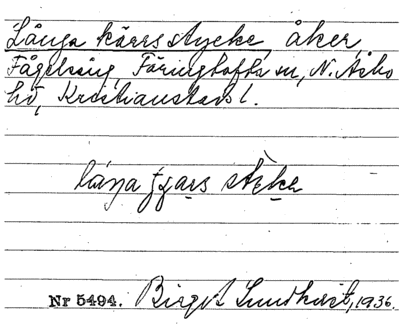 Långa kärrs stycke, åker,
Fågelsång, Färingtofta sn, N. Åsbo
hd, Kristianstads l.
Nr 5494. Birgit Lundkvist, 1936.